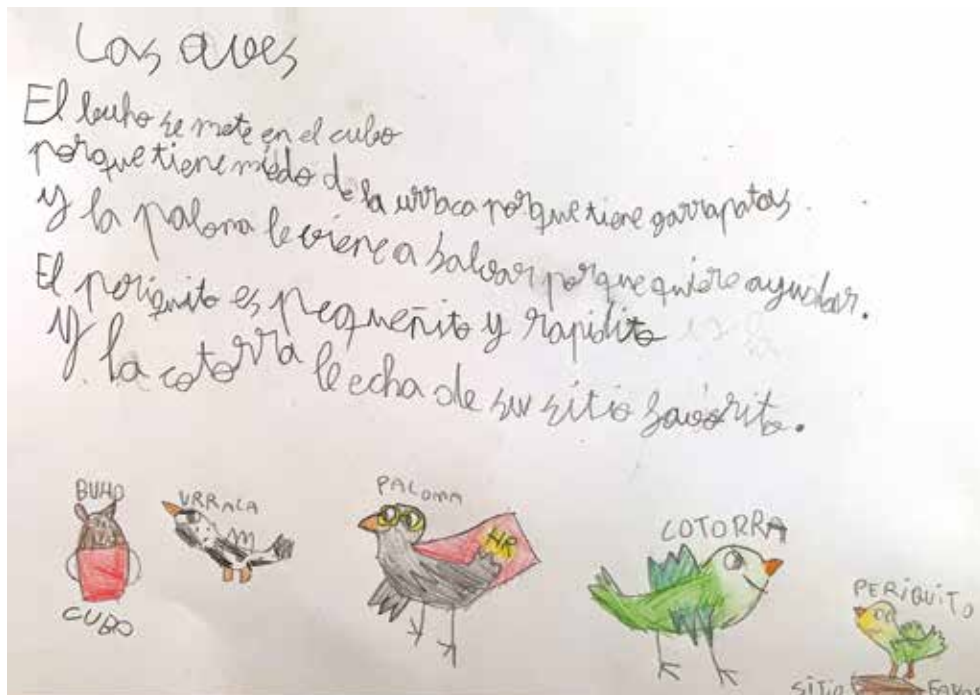 Las aves
El buho se mete en el cubo
porque tiene miedo de la urraca porque tiene garrapatas.
y la paloma le viene a salvar porque quiere ayudar.
El periquito es pequeñito y rapidito
y la cotorra le echa de su sitio favorito.
BUHO
URRACA
PALOMA
HR
COTORRA
PERIQUITO
CUBO
SITIO